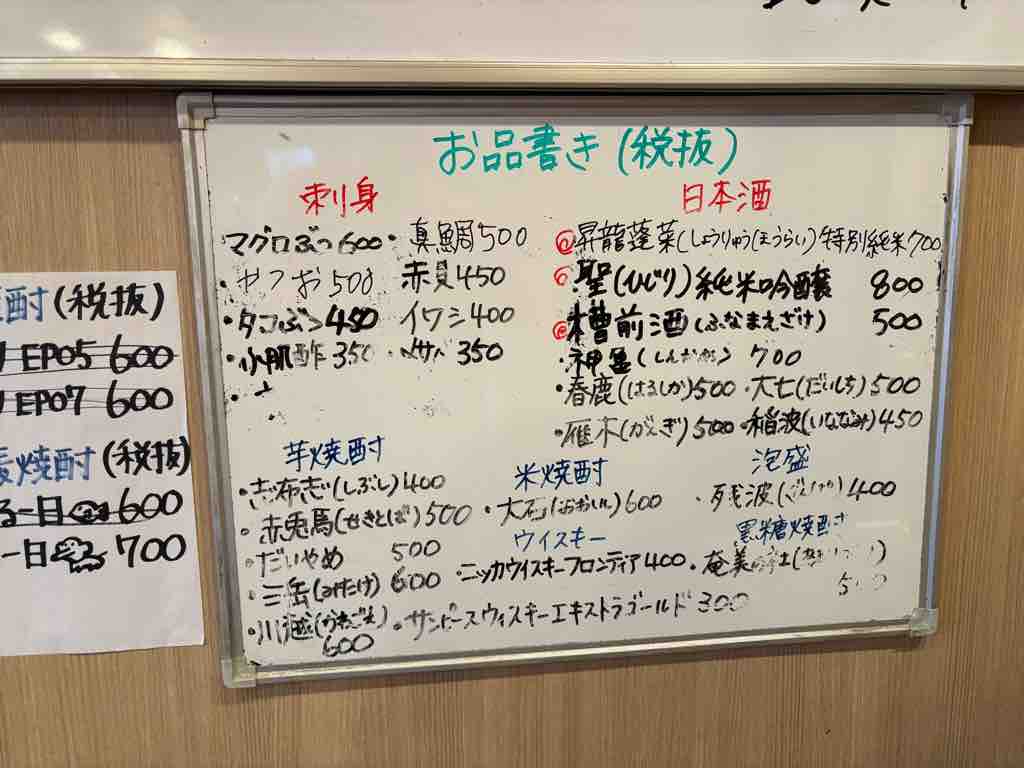 お品書き(税抜)
刺身
マグロぶつ600
・真鯛500
500
赤貝450
・タコぶつ450
イワシ400
・小肌酢350
・〆サバ350
日本酒
昇龍蓬莱(しょうりゅうほうらい)特別純米700
聖(ひじり)純米吟醸 800
槽前酒(ふなまえざけ) 500
・神亀(しんかめ) 700
・春鹿(はるしか)500
・大七(だいしち)500
・雁木(がんぎ)500
・稲波(いななみ)450
芋焼酎
・志布志(しぶし)400
・赤兎馬(せきとば)500
・だいやめ 500
・三岳(みたけ)600
・川越(かわごえ)
600
米焼酎
・大石(おおいし)600
ウイスキー
・ニッカウイスキーフロンティア400
・サンピースウィスキーエキストラゴールド300
泡盛
・残波(ざんぱ)400
黒糖焼酎
・奄美
500
酎(税抜)
EP05 600
EP07 600
焼酎(税抜)
る一日 600
一日 700